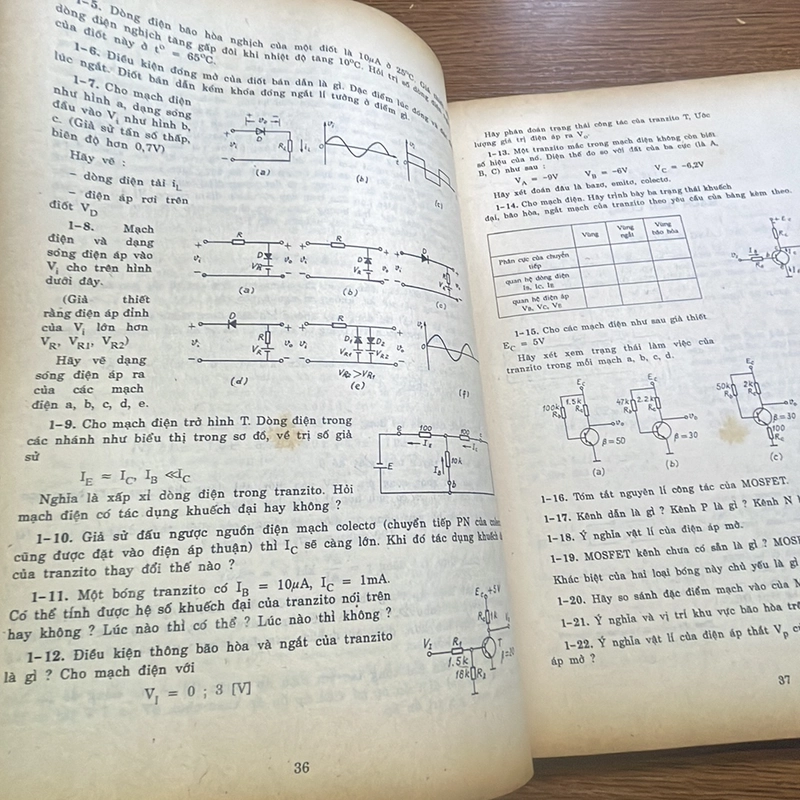 1-5. Dòng điện bão hòa nghịch của một điốt là 10μA ở 25°C.
dòng điện nghịch tăng gấp đôi khi nhiệt độ tăng 10°C. Hỏi trị số dòng
của điốt này ở t° = 65°C.
1-6. Điều kiện đóng mở của điốt bán dẫn là gì. Đặc điểm lúc đóng và
lúc ngắt. Điốt bán dẫn kém khóa đóng ngắt lí tưởng ở điểm gì.
1-7. Cho mạch điện
như hình a, dạng sóng
đầu vào Vi như hình b,
c. (Giả sử tần số thấp,
biên độ hơn 0,7V)
Hãy vẽ :
- dòng điện tải iL
- điện áp rơi trên
điốt VD
(a)
(b)
(c)
1-8. Mạch
điện và dạng
sóng điện áp vào
Vi cho trên hình
dưới đây.
(Giả thiết
rằng điện áp đỉnh
của Vi lớn hơn
VR, VR1, VR2)
Hãy vẽ dạng
sóng điện áp ra
của các mạch
điện a, b, c, d, e.
(a)
(b)
(c)
(d)
VR2 > VR1
(e)
(f)
1-9. Cho mạch điện trở hình T. Dòng điện trong
các nhánh như biểu thị trong sơ đồ, về trị số giả
sử
IE ≈ IC, IB ≪ IC
Nghĩa là xấp xỉ dòng điện trong tranzito. Hỏi
mạch điện có tác dụng khuếch đại hay không ?
e 100 100
IE IC
E
IB 10k
b
1-10. Giả sử đấu ngược nguồn điện mạch colectơ (chuyển tiếp PN của
cũng được đặt vào điện áp thuận) thì IC sẽ càng lớn. Khi đó tác dụng khuếch
của tranzito thay đổi thế nào ?
1-11. Một bóng tranzito có IB = 10μA, IC = 1mA.
Có thể tính được hệ số khuếch đại của tranzito nói trên
hay không ? Lúc nào thì có thể ? Lúc nào thì không ?
1-12. Điều kiện thông bão hòa và ngắt của tranzito
là gì ? Cho mạch điện với
VI = 0 ; 3 [V]
EC +5V
RC 1k
R1
1.5k
T
18k R2
36
Hãy phán đoán trạng thái công tác của tranzito T, Ước
lượng giá trị điện áp ra Vo.
1-13. Một tranzito mắc trong mạch điện không còn biết
số hiệu của nó. Điện thế đo so với đất của ba cực (là A,
B, C) như sau :
VA = -9V VB = -6V VC = -6,2V
Hãy xét đoán đâu là bazơ, emitơ, colectơ.
1-14. Cho mạch điện. Hãy trình bày ba trạng thái khuếch
đại, bão hòa, ngắt mạch của tranzito theo yêu cầu của bảng kèm theo.
Vùng
Vùng ngắt
Vùng bão hòa
Phân cực của chuyển tiếp
quan hệ dòng điện IB, IC, IE
quan hệ điện áp VB, VC, VE
1-15. Cho các mạch điện như sau giả thiết
EC = 5V
Hãy xét xem trạng thái làm việc của
tranzito trong mỗi mạch a, b, c, d.
EC
100k RB
1.5k RC
β = 50
(a)
EC
47k RB
2.2k RC
β = 30
(b)
EC
50k RB
2k RC
β = 30
100 RE
(c)
1-16. Tóm tắt nguyên lí công tác của MOSFET.
1-17. Kênh dẫn là gì ? Kênh P là gì ? Kênh N
1-18. Ý nghĩa vật lí của điện áp mở.
1-19. MOSFET kênh chưa có sẵn là gì ?
Khác biệt của hai loại bóng này chủ yếu là gì
1-20. Hãy so sánh đặc điểm mạch vào của
1-21. Ý nghĩa và vị trí khu vực bão hòa
1-22. Ý nghĩa vật lí của điện áp thắt Vp
áp mở ?
37